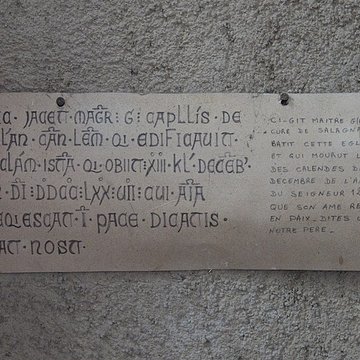 C · JACET · MAGR : G : CAPLLIS · DE
LAN · CAN · LEM · QI · EDIFICAUIT ·
CLAM · ISTA · QI · OBIIT : XIII · KL' · DECEB' ·
DI : DDCC : LXX : UII : CUI · AIA
EQIESCAT · I · PACE · DICATIS ·
AT · NOST ·
CI-GIT MAITRE
CURE DE SALAGNA
BATIT CETTE EGL
ET QUI MOURUT L
DES CALENDES D
DECEMBRE DE L'A
DU SEIGNEUR 12
QUE SON AME RE
EN PAIX_ DITES
NOTRE PERE_